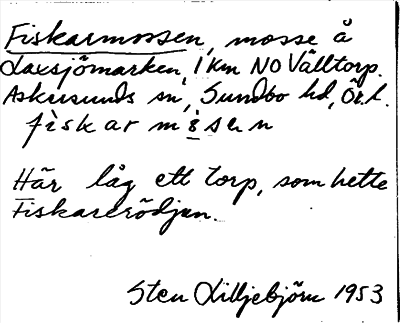 Fiskarmossen, mosse å
Laxsjömarken, 1 km NO Välltorp.
Askersunds sn, Sundbo hd, Ör. l.
fìskar m
Här låg ett torp, som hette
Fiskareródjan.
Sten Lilljebjörn 1953